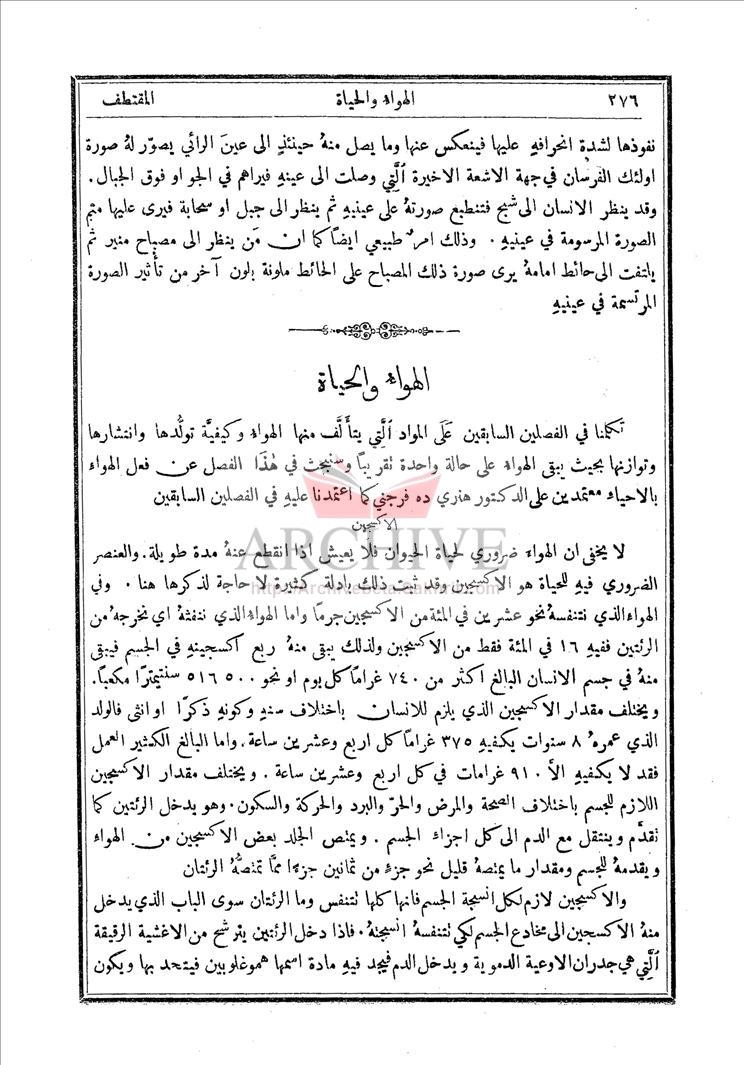 ٢٧٦ الهواء والحياة المقتطف
نفوذها لشدة انحرافهِ عليها فينعكس عنها وما يصل منهُ حينئذٍ الى عين الرائي يصوّر لهُ صورة
اولئك الفرسان في جهة الاشعة الاخيرة الَّتي وصلت الى عينهِ فيراهم في الجو او فوق الجبال .
وقد ينظر الانسان الى شبح فتنطبع صورتهُ على عينيهِ ثم ينظر الى جبل او سحابة فيرى عليها متمم
الصورة المرسومة في عينيهِ . وذلك امرٌ طبيعي ايضاً كما ان مَن ينظر الى مصباح منير ثم
يلتفت الى حائط امامهُ يرى صورة ذلك المصباح على الحائط ملونة بلون آخر من تأثير الصورة
المرتسمة في عينيهِ
الهواء والحياة
تكلمنا في الفصلين السابقين عَلَى المواد الَّتي يتأَلَّف منها الهواء وكيفيَّة تولُّدها وانتشارها
وتوازنها بحيث يبقى الهواء على حالة واحدة نقريباً وسنبحث في هٰذَا الفصل عن فعل الهواء
بالاحياء معتمدين على الدكتور هنري ده فرجني كما اعتمدنا عليهِ في الفصلين السابقين
الاكسجين
ARCHIVE
http://Archivebeta.Sakhrit.com
لا يخفى ان الهواء ضروري لحياة الحيوان فلا يعيش اذا انقطع عنهُ مدة طويلة . والعنصر
الضروري فيهِ للحياة هو الاكسجين وقد ثبت ذلك بادلة كثيرة لا حاجة لذكرها هنا . وفي
الهواء الذي نتنفسهُ نحو عشرين في المئة من الاكسجين جرماً واما الهواء الذي ننفثهُ اي نخرجه من
الرئتين ففيهِ ١٦ في المئة فقط من الاكسجين ولذلك يبقى منهُ ربع اكسجينهِ في الجسم فيبقى
منهُ في جسم الانسان البالغ اكثر من ٧٤٠ غراماً كل يوم او نحو ٥٠٠ ٥١٦ سنتيمتراً مكعباً .
ويختلف مقدار الاكسجين الذي يلزم للانسان باختلاف سنهِ وكونهِ ذكراً او انثى فالولد
الذي عمرهُ ٨ سنوات يكفيهِ ٣٧٥ غراماً كل اربع وعشرين ساعة . واما البالغ الكثير العمل
فقد لا يكفيهِ الأ ٩١٠ غرامات في كل اربع وعشرين ساعة . ويختلف مقدار الاكسجين
اللازم للجسم باختلاف الصحة والمرض والحرّ والبرد والحركة والسكون . وهو يدخل الرئتين كما
نقدَّم وينتقل مع الدم الى كل اجزاء الجسم . ويمتص الجلد بعض الاكسجين من الهواء
ويقدمهُ للجسم ومقدار ما يمتصهُ قليل نحو جزءٍ من ثمانين جزءًا ممَّا تمتصُّهُ الرئتان
والاكسجين لازم لكل انسجة الجسم فانها كلها نتنفس وما الرئتان سوى الباب الذي يدخل
منهُ الاكسجين الى مخادع الجسم لكي نتنفسهُ انسجتهُ . فاذا دخل الرئتين يترشح من الاغشية الرقيقة
الَّتي هي جدران الاوعية الدموية ويدخل الدم فيجد فيهِ مادة اسمها هموغلوبين فيتحد بها ويكون